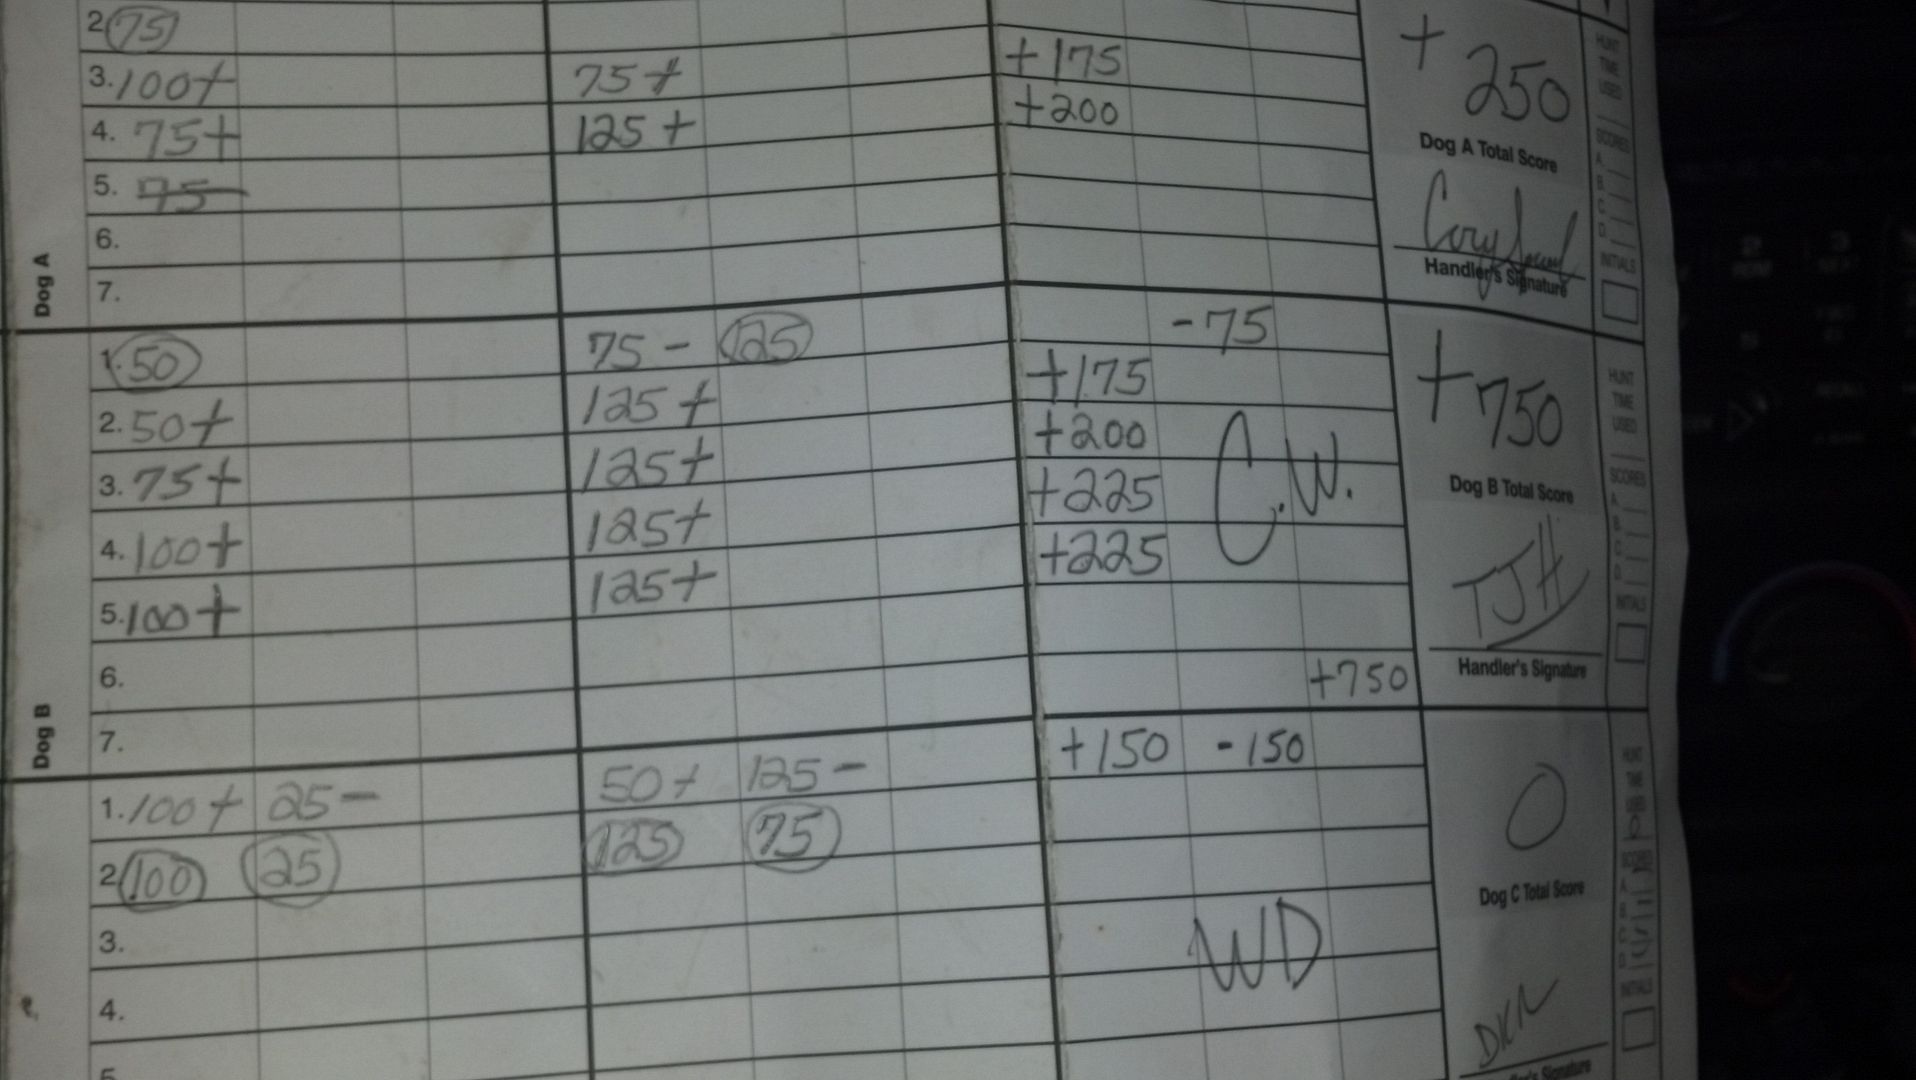 2. 75
3. 100+ 75+ +175
4. 75+ 125+ +200
5. 75
6.
7.
Dog A
+ 250
Dog A Total Score
Handler's Signature
HUNT TIME USED
SCORES
A.
B.
C.
D.
INITIALS
1. 50 75 - 125 -75
2. 50+ 125+ +175
3. 75+ 125+ +200
4. 100+ 125+ +225
5. 100+ 125+ +225
C.W.
6. +750
7.
Dog B
+750
Dog B Total Score
TJH
Handler's Signature
HUNT TIME USED
SCORES
A.
B.
C.
D.
INITIALS
1. 100+ 25- 50+ 125- +150 -150
2. 100 25 125 75
3.
WD
4.
5
0
Dog C Total Score
DKN
Signature
HUNT TIME USED
SCORES
INITIALS